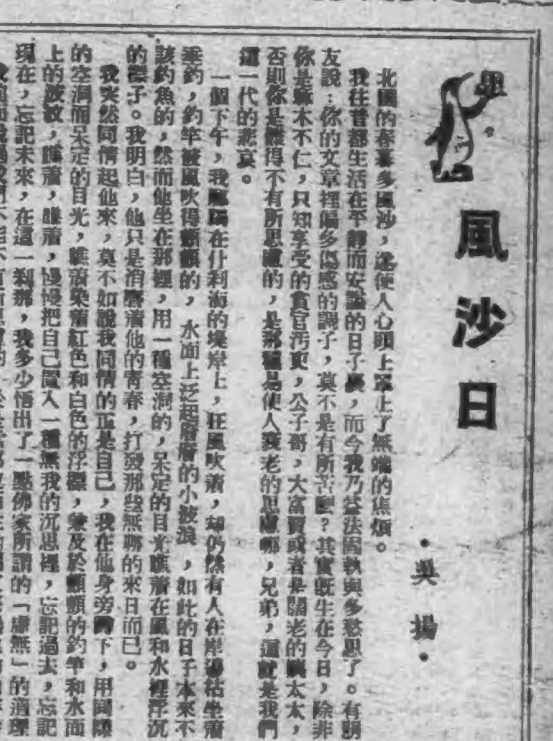 風沙日
·吳揚·
北國的春暮多風沙,遂使人心頭上罩上了無端的焦煩。
我往昔都生活在平靜而安謐的日子裏,而今我乃益法固執與多愁思了。有朋
友說:你的文章裡偏多傷感的調子,莫不是有所苦麽?其實既生在今日,除非
你是麻木不仁,只知享受的貪官汚吏,公子哥,大富賈或者是闊老的姨太太,
否則你是難得不有所思慮的,是那種易使人衰老的思慮哪,兄弟,這就是我們
這一代的悲哀。
一個下午,我在什刹海的堤岸上,狂風吹着,却仍然有人在岸邊枯坐着
垂釣,釣竿被風吹得顫顫的,水面上泛起層層的小波浪,如此的日子本來不
該釣魚的,然而他坐在那裡,用一種空洞的,呆定的目光瞧着在風和水裡浮沉
的漂子。我明白,他只是消磨着他的靑春,打發那些無聊的來日而已。
我突然同情起他來,莫不如說我同情的正是自己,我在他身旁蹲下,用同樣
的空洞而呆定的目光,瞧着染着紅色和白色的浮漂,兼及於顫顫的釣竿和水面
上的波紋,瞧着,瞧着,慢慢把自己置入一種無我的沉思裡,忘記過去,忘記
現在,忘記未來,在這一刹那,我多少悟出了一點佛家所謂的「虛無」的道理